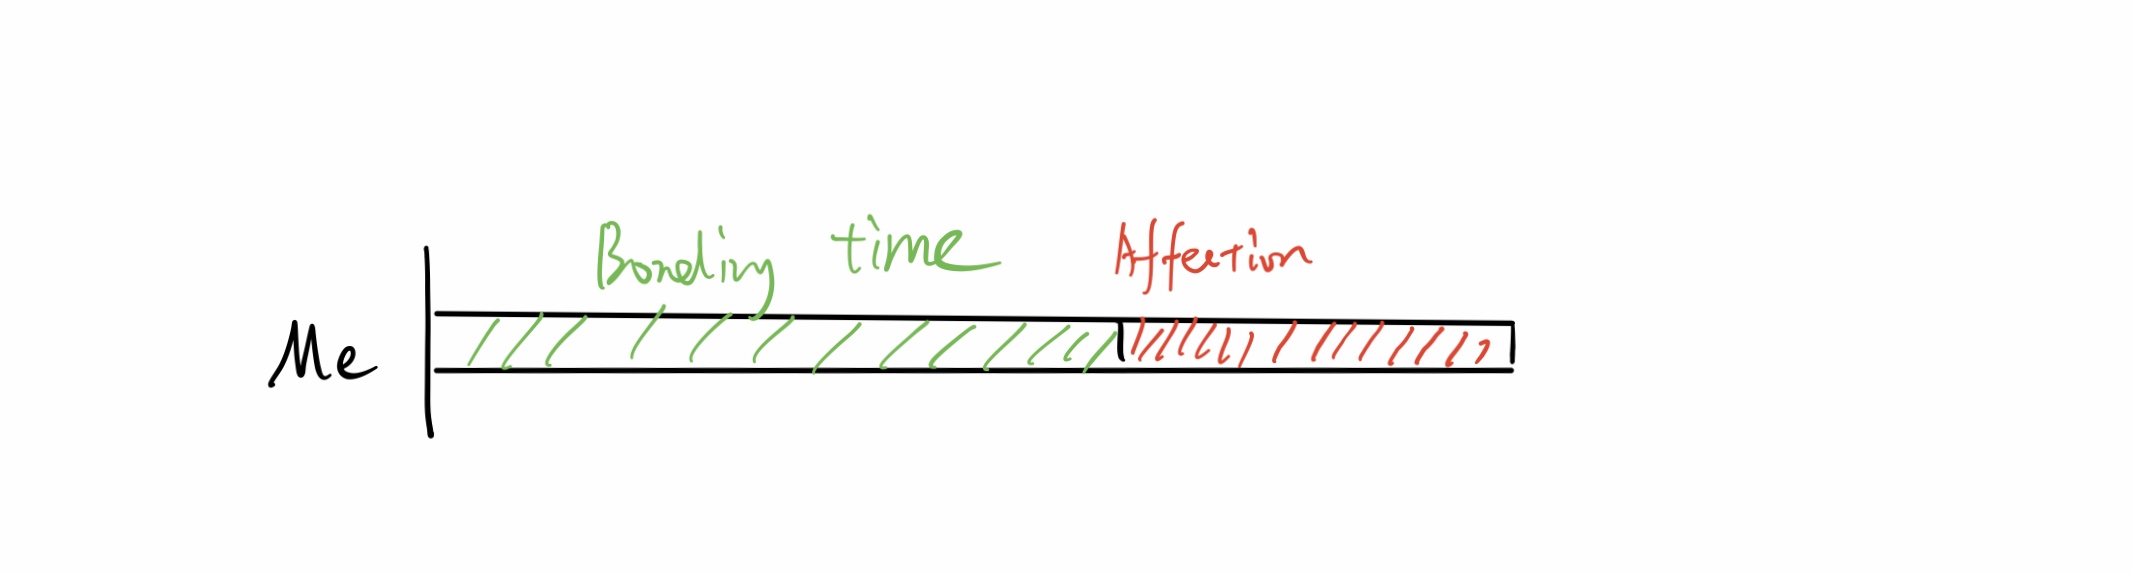 Bonding time
Affection
Me